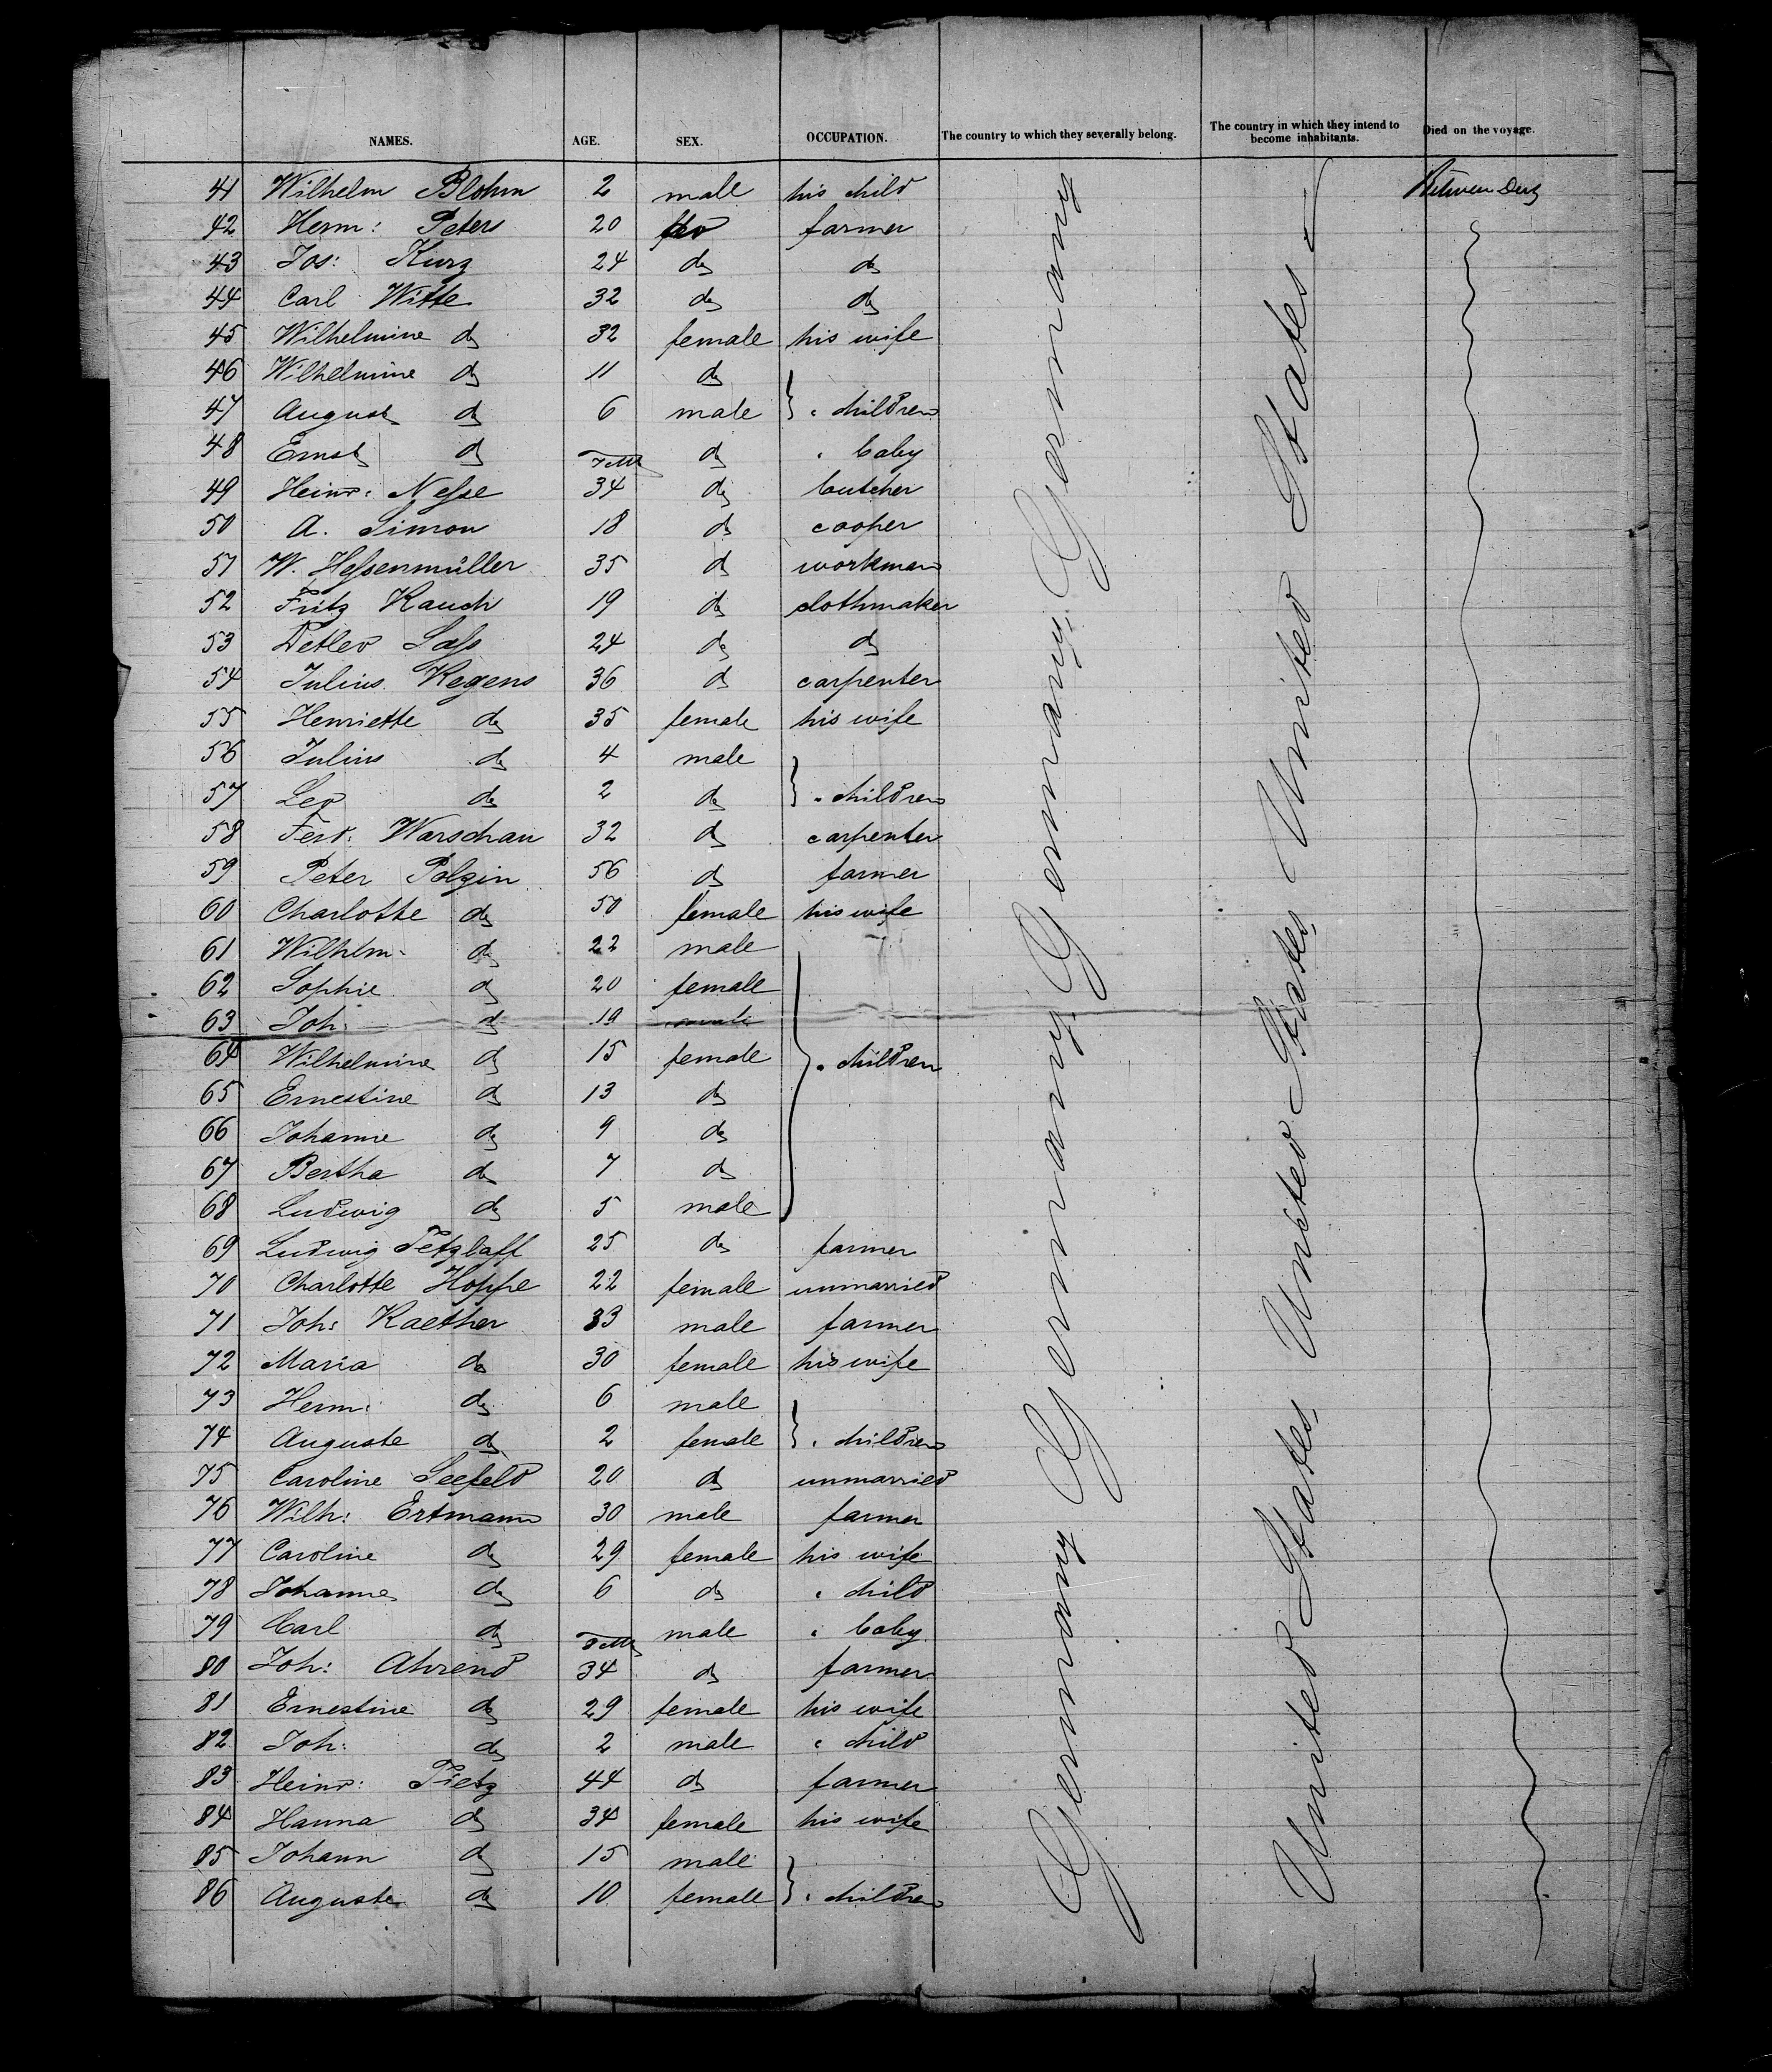 NAMES. AGE. SEX. OCCUPATION. The country to which they severally belong. The country in which they intend to become inhabitants. Died on the voyage.
41 Wilhelm Blohm 2 male his child
42 Herm: Peters 20 do farmer
43 Jos: Kurz 24 do do
44 Carl Witte 32 do do
45 Wilhelmine do 32 female his wife
46 Wilhelmine do 11 do
47 August do 6 male } " children
48 Ernst do 7 M do " baby
49 Heinr: Nesse 34 do butcher
50 A. Simon 18 do cooper
51 W. Hessenmüller 35 do workman
52 Fritz Rauch 19 do clothmaker
53 Detlev Sass 24 do do
54 Julius Regens 36 do carpenter
55 Henriette do 35 female his wife
56 Julius do 4 male
57 Leo do 2 do } " children
58 Ferd: Warschau 32 do carpenter
59 Peter Polzin 56 do farmer
60 Charlotte do 50 female his wife
61 Wilhlm do 22 male
62 Sophie do 20 female
63 Joh: do 19 male
64 Wilhelmine do 15 female } " children
65 Ernestine do 13 do
66 Johanne do 9 do
67 Bertha do 7 do
68 Ludwig do 5 male
69 Ludwig Tetzlaff 25 do farmer
70 Charlotte Hoppe 22 female unmarried
71 Joh: Raether 33 male farmer
72 Maria do 30 female his wife
73 Herm: do 6 male
74 Auguste do 2 female } " children
75 Caroline Seefeld 20 do unmarried
76 Wilh: Ertmann 30 male farmer
77 Caroline do 29 female his wife
78 Johanne do 6 do " child
79 Carl do 8 M male " baby
80 Joh: Ahrend 34 do farmer
81 Ernestine do 29 female his wife
82 Joh: do 2 male " child
83 Heinr: Tietz 44 do farmer
84 Hanna do 34 female his wife
85 Johann do 15 male
86 Auguste do 10 female } " children
Germany Germany Germany Germany
United States United States United States
Between Deck